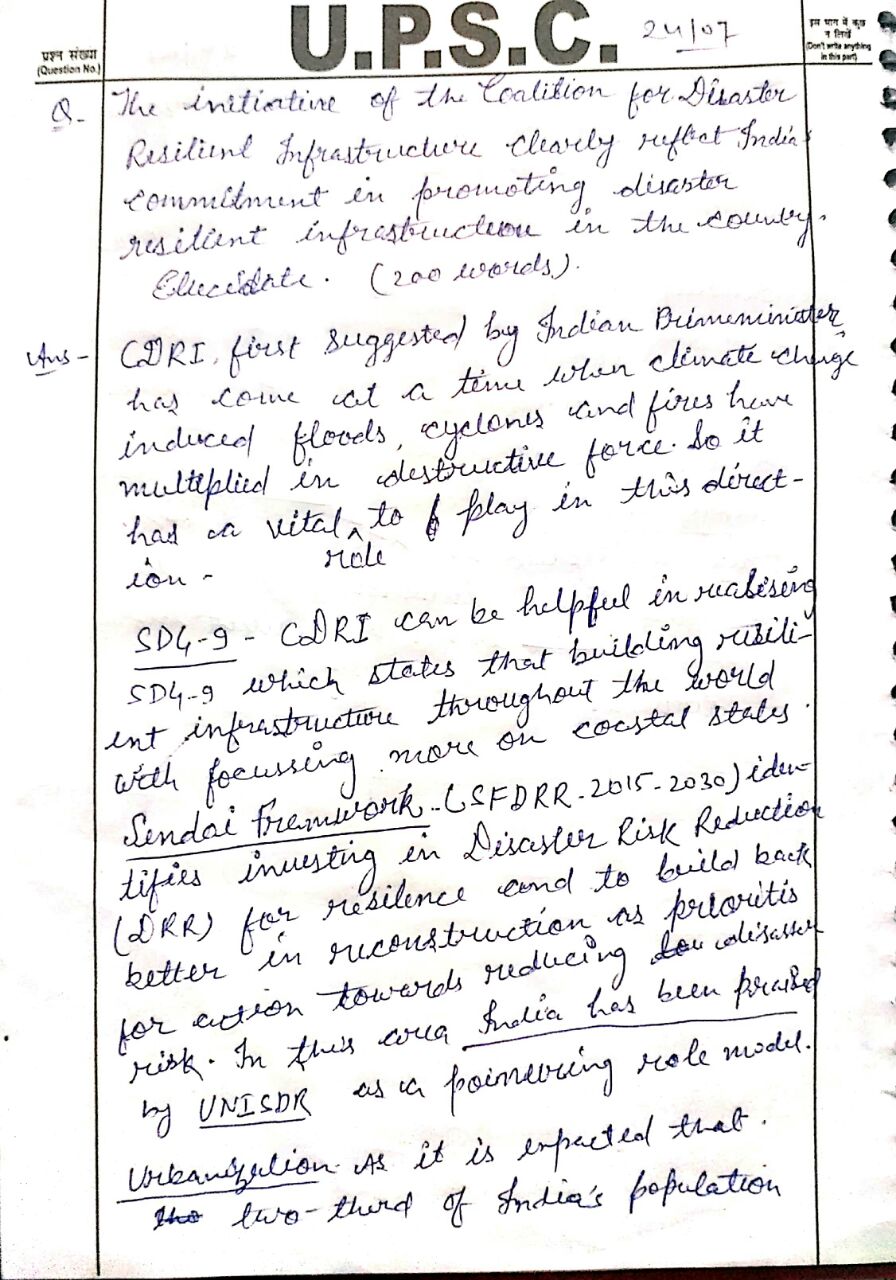 U.P.S.C.
24/07
प्रश्न संख्या
(Question No.)
इस भाग में कुछ
न लिखें
(Don't write anything
in this part)
Q- The initiative of the Coalition for Disaster
Resilient Infrastructure clearly reflect India's
commitment in promoting disaster
resilient infrastructure in the country.
Elucidate. (200 words).
Ans- CDRI, first suggested by Indian Primeminister
has come at a time when climate change
induced floods, cyclones and fires have
multiplied in destructive force. So it
has a vital ^ to play in this direct-
role
ion -
SDG-9 - CDRI can be helpful in realising
SDG-9 which states that building resili-
ent infrastructure throughout the world
with focussing more on coastal states.
Sendai Framwork - (SFDRR-2015-2030) iden-
tifies investing in Disaster Risk Reduction
(DRR) for resilence and to build back
better in reconstruction as prioritis
for action towards reducing disaster
risk. In this area India has been praised
by UNISDR as a poineering role model.
Urbanization - As it is expected that
two-third of India's population